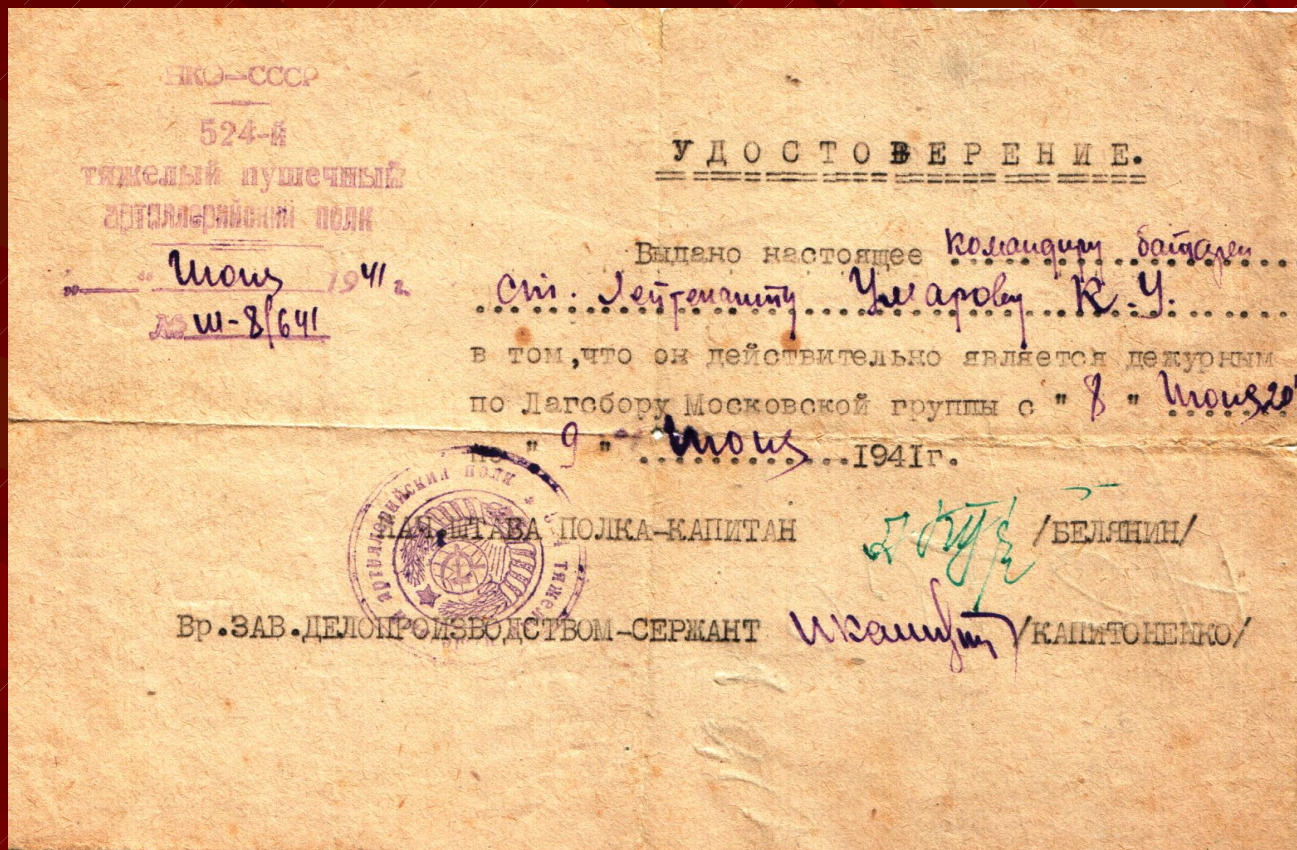 НКО-СССР
524-й
тяжелый пушечный
артиллерийский полк
„ “ Июня 1941 г.
№ Ш-8/641
УДОСТОВЕРЕНИЕ.
Выдано настоящее командиру батареи
ст. Лейтенанту Умарову К.У.
в том,что он действительно является дежурным
по Лагсбору Московской группы с " 8 " Июня 20
по " 9 " Июня 1941г.
НАЧ.ШТАБА ПОЛКА-КАПИТАН /БЕЛЯНИН/
Вр.ЗАВ.ДЕЛОПРОИЗВОДСТВОМ-СЕРЖАНТ /КАПИТОНЕНКО/
артиллерийский полк * 524 тяжел